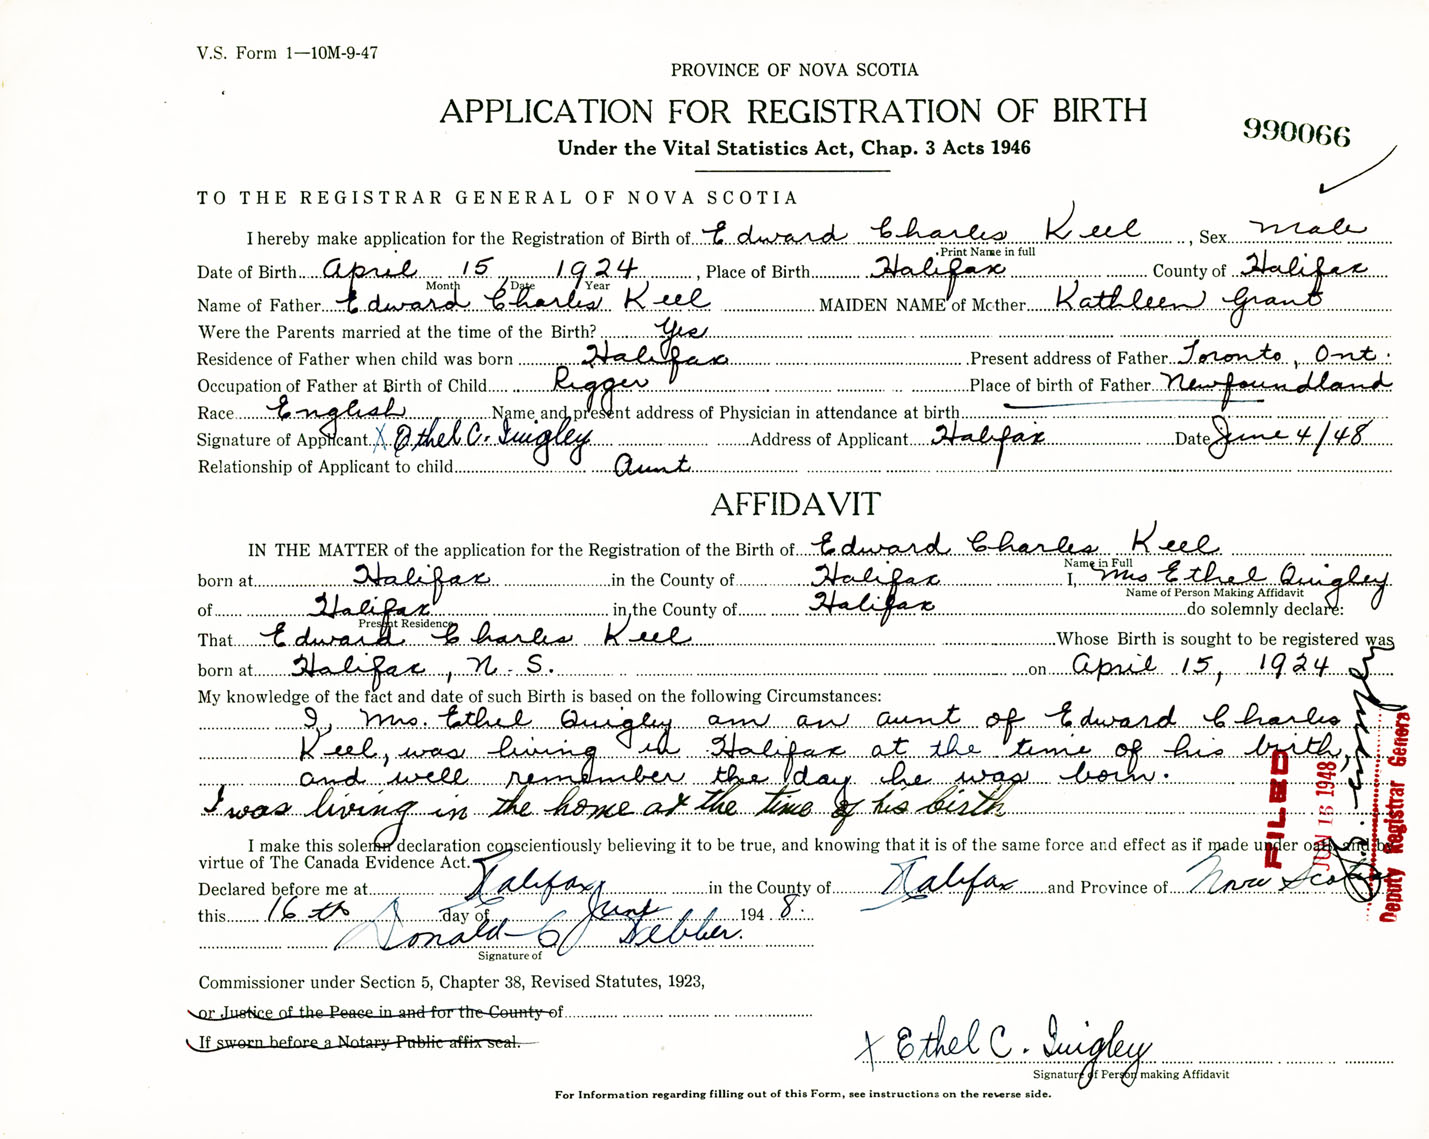 V.S. Form 1—10M-9-47
PROVINCE OF NOVA SCOTIA
APPLICATION FOR REGISTRATION OF BIRTH
990066
Under the Vital Statistics Act, Chap. 3 Acts 1946
TO THE REGISTRAR GENERAL OF NOVA SCOTIA
I hereby make application for the Registration of Birth of Edward Charles Keel, Sex Male
Print Name in full
Date of Birth April 15 1924, Place of Birth Halifax County of Halifax
Month Date Year
Name of Father Edward Charles Keel MAIDEN NAME of Mother Kathleen Grant
Were the Parents married at the time of the Birth? Yes
Residence of Father when child was born Halifax Present address of Father Toronto, Ont.
Occupation of Father at Birth of Child Rigger Place of birth of Father Newfoundland
Race English Name and present address of Physician in attendance at birth
Signature of Applicant X Ethel C. Quigley Address of Applicant Halifax Date June 4/48
Relationship of Applicant to child Aunt
AFFIDAVIT
IN THE MATTER of the application for the Registration of the Birth of Edward Charles Keel
Name in Full
born at Halifax in the County of Halifax I, Mrs Ethel Quigley
Name of Person Making Affidavit
of Halifax in the County of Halifax do solemnly declare:
Present Residence
That Edward Charles Keel Whose Birth is sought to be registered was
born at Halifax, N.S. on April 15, 1924
My knowledge of the fact and date of such Birth is based on the following Circumstances:
I, Mrs. Ethel Quigley am an aunt of Edward Charles
Keel, was living in Halifax at the time of his birth,
and well remember the day he was born.
I was living in the home at the time of his birth
I make this solemn declaration conscientiously believing it to be true, and knowing that it is of the same force and effect as if made under oath and by
virtue of The Canada Evidence Act.
Declared before me at Halifax in the County of Halifax and Province of Nova Scotia
this 16th day of June 1948.
Donald C Webber.
Signature of
Commissioner under Section 5, Chapter 38, Revised Statutes, 1923,
or Justice of the Peace in and for the County of
If sworn before a Notary Public affix seal.
X Ethel C. Quigley
Signature of Person making Affidavit
For Information regarding filling out of this Form, see instructions on the reverse side.
FILED
JUN 16 1948
Deputy Registrar General